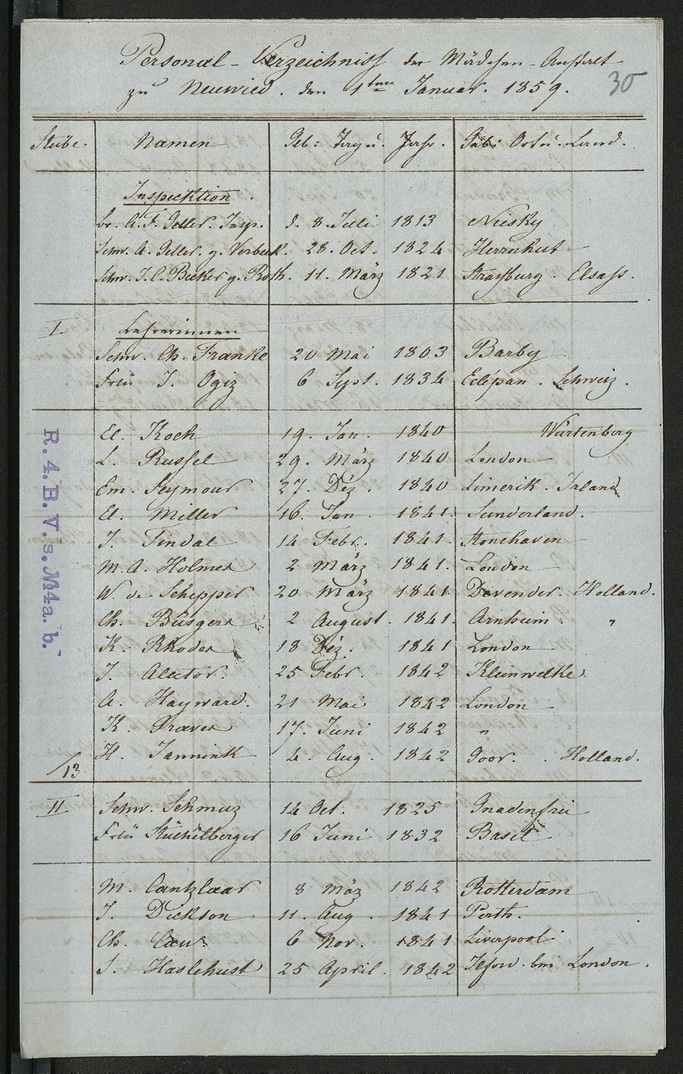 Personal-Verzeichniss der Mädchen-Anstalt
zu Neuwied. den 1ten Januar. 1859.
30
Stube. Namen Geb: Tag u. Jahr. Geb: Ort u. Land.
Inspecktion.
br. A. F. Geller. Insp. d. 8. Juli 1813 Niesky
Schw. A. Geller. g. Verbeek. 28. Oct. 1824 Herrnhut
Schw. J. C. Becker g. Roth. 11. März 1821 Strassburg Elsass.
I Lehrerinnen
Schw. Ch. Franke 20 Mai 1803 Barby
Frln J. Ogiz 6 Sept. 1834 Eclépan. Schweiz.
El. Koch 19. Jan. 1840 Würtenberg
L. Russel 29. März 1840 London
Em. Seymour 27. Dez. 1840 Limerik. Irland
El. Miller 16. Jan 1841. Sunderland.
J. Tindal 14 Febr. 1841. Stonehaven
M. A. Holmes 2 März 1841. London
W. de Schepper 20 März 1841 Davender. Holland.
Ch. Büsgers 2 August. 1841. Arnheim "
K. Rhodes 18 Dez. 1841 London
J. Alector. 25 Febr. 1842 Kleinwelke
A. Hayward. 21 Mai 1842 London
K. Graves 17. Juni 1842 "
H. Jannink 4. Aug. 1842 Goor. Holland.
/13
II Schw. Schmuz 14 Oct. 1825 Gnadenfrei
Frln Stückelberger 16 Juni 1832 Basel
M. Cantzlaar 8 März 1842 Rotterdam
J. Dickson 11. Aug. 1841 Perth.
Ch. 6 Nov. 1841 Liverpool
S. Haslehust 25 April. 1842 Ilford. bei London.
R. 4. B. V. s. No 4 a. b.